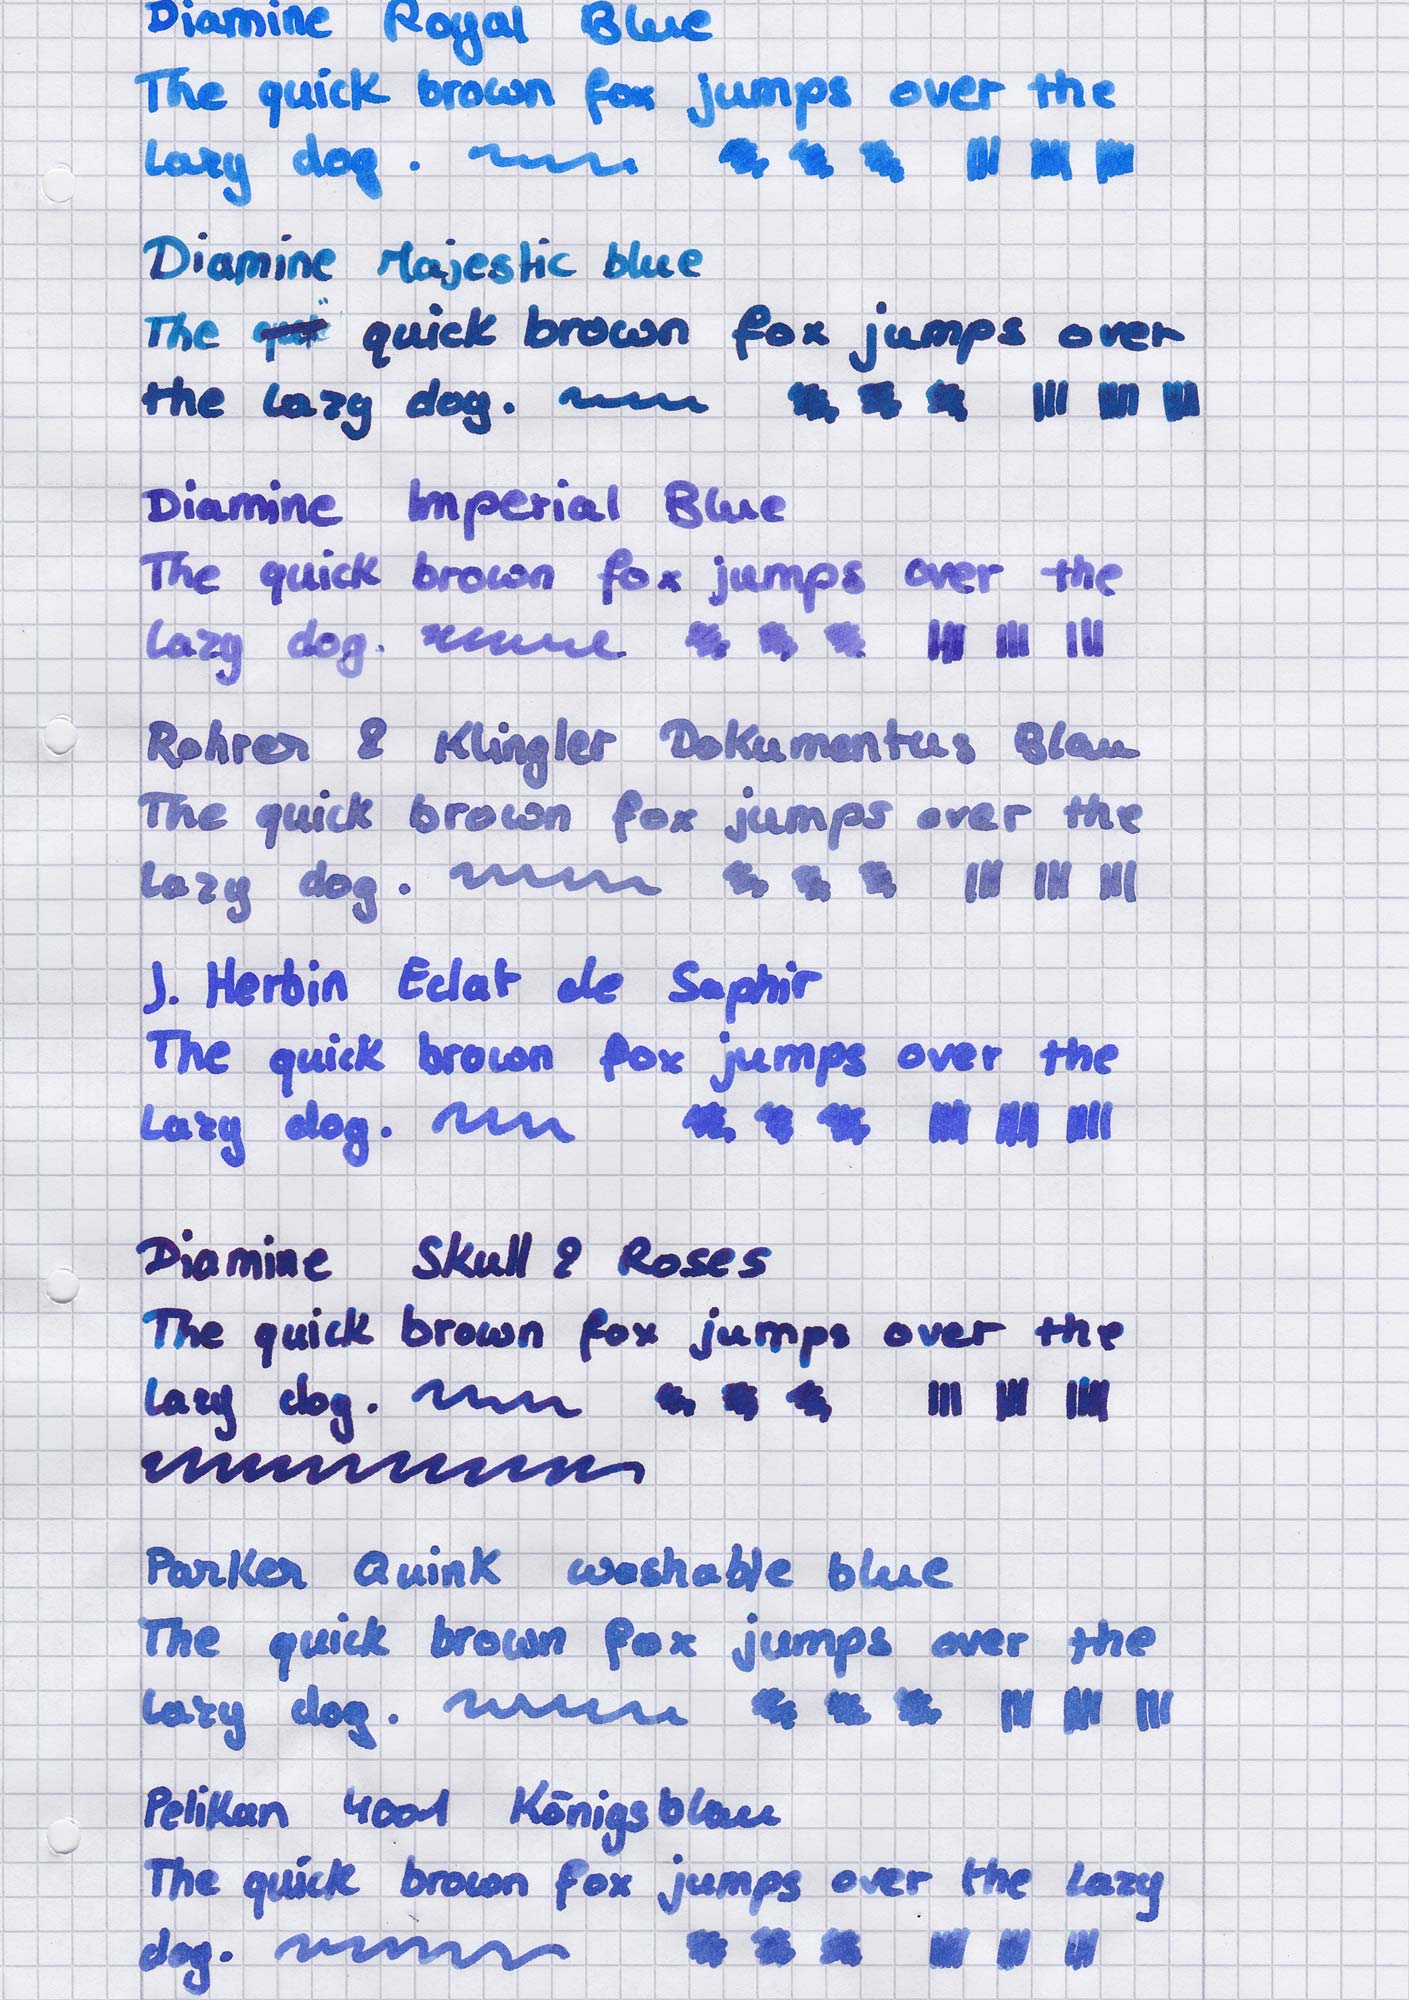 Diamine Royal Blue
The quick brown fox jumps over the
lazy dog.
Diamine Majestic blue
The quick brown fox jumps over
the lazy dog.
Diamine Imperial Blue
The quick brown fox jumps over the
lazy dog.
Rohrer & Klingler Dokumentus Blau
The quick brown fox jumps over the
lazy dog.
J. Herbin Eclat de Saphir
The quick brown fox jumps over the
lazy dog.
Diamine Skull & Roses
The quick brown fox jumps over the
lazy dog.
Parker Quink washable blue
The quick brown fox jumps over the
lazy dog.
Pelikan 4001 Königsblau
The quick brown fox jumps over the lazy
dog.